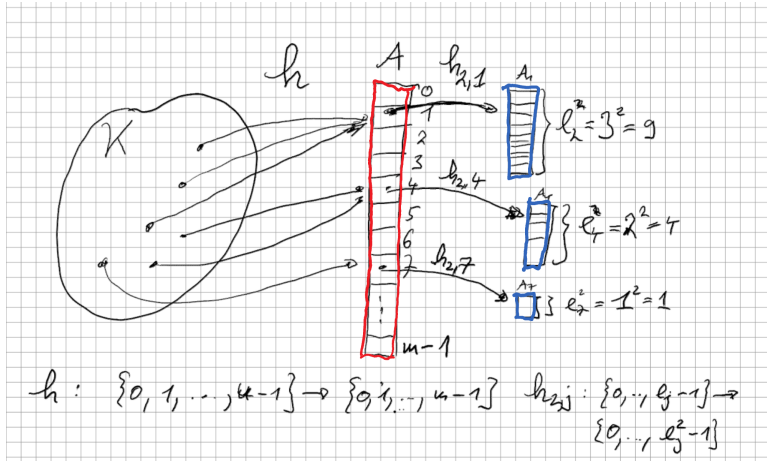 h
A
h₂,₁
A₁
K
0
1
2
3
4
5
6
7
m-1
l₂² = 3² = 9
h₂,₄
A₄
l₄² = 2² = 4
h₂,₇
A₇
l₇² = 1² = 1
h : {0, 1, ..., u-1} → {0, 1, ..., m-1} h₂,j : {0, .., lj-1} →
{0, .., lj²-1}